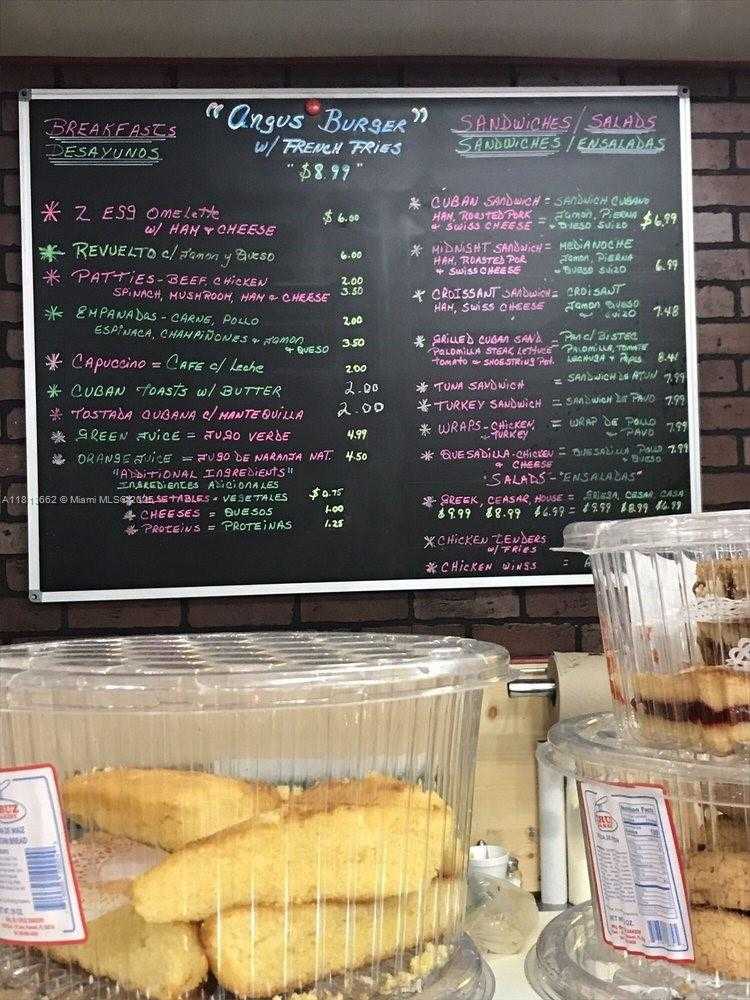 BREAKFASTS
DESAYUNOS
"Angus BURGER"
W/ FRENCH FRIES
"$8.99"
SANDWICHES / SALADS
SANDWICHES / ENSALADAS
* 2 Egg Omelette $6.00
W/ HAM & CHEESE
* REVUELTO c/ Jamon y Queso 6.00
* PATTIES - BEEF, CHICKEN 2.00
SPINACH, MUSHROOM, HAM & CHEESE 3.50
* EMPANADAS - CARNE, POLLO 2.00
ESPINACA, CHAMPIÑONES & JAMON & QUESO 3.50
* CAPUCCINO = CAFE c/ Leche 2.00
* CUBAN TOASTS W/ BUTTER 2.00
* TOSTADA CUBANA C/ MANTEQUILLA 2.00
* GREEN JUICE = JUGO VERDE 4.99
* ORANGE JUICE = JUGO DE NARANJA NAT. 4.50
"ADDITIONAL INGREDIENTS"
INGREDIENTES ADICIONALES
* VEGETABLES - VEGETALES $0.75
* CHEESES = QUESOS 1.00
* PROTEINS = PROTEINAS 1.25
* CUBAN SANDWICH = SANDWICH CUBANO
HAM, ROASTED PORK = Jamon, PIERNA $6.99
& SWISS CHEESE & QUESO SUIZO
* MIDNIGHT SANDWICH = MEDIANOCHE
HAM, ROASTED POR Jamon, PIERNA
& SWISS CHEESE & QUESO SUIZO 6.99
* CROISSANT SANDWICH = CROISANT
HAM, SWISS CHEESE Jamon QUESO
SUIZO 7.48
* GRILLED CUBAN SAND. = PAN C/ BISTEC
PALOMILLA STEAK, LETTUCE PALOMILLA, TOMATE
TOMATO & SHOESTRING POT. LECHUGA & PAPAS 8.41
* TUNA SANDWICH = SANDWICH DE ATUN 7.99
* TURKEY SANDWICH = SANDWICH DE PAVO 7.99
* WRAPS - CHICKEN, = WRAP DE POLLO
TURKEY PAVO 7.99
* QUESADILLA - CHICKEN = QUESADILLA POLLO 7.99
& CHEESE & QUESO
"SALADS - "ENSALADAS"
* GREEK, CEASAR, HOUSE = GRIEGA, CESAR, CASA
$9.99 $8.99 $6.99 = $9.99 $8.99 $6.99
* CHICKEN TENDERS
W/ FRIES
* CHICKEN WINGS =
Miami MLS
Nutrition Facts